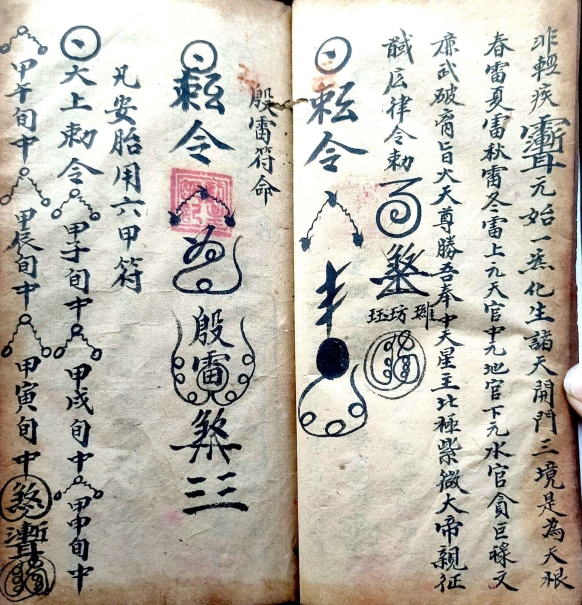 非輕疾 元始一炁化生諸天開門三境是為天根
春雷夏雷秋雷冬雷上元天官中元地官下元水官貪巨祿文
廉武破 旨火天尊勝吾奉中天星王北極紫微大帝親征
律令勅
煞
敕令
殷雷符命
敕令
殷雷
煞
凡安胎用六甲符
大上勅令 甲子旬中 甲戌旬中 甲申旬中
甲午旬中 甲辰旬中 甲寅旬中 煞